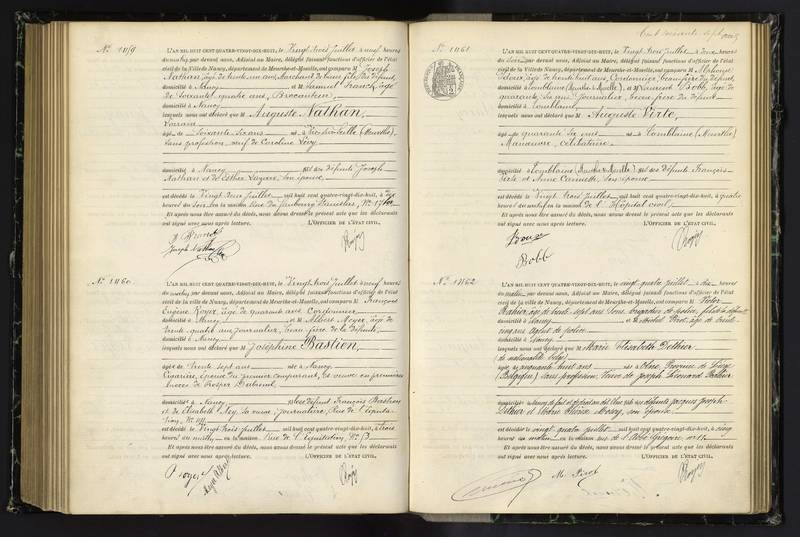 N° 1159
L'AN MIL HUIT CENT QUATRE-VINGT-DIX-HUIT, le Vingt trois Juillet à neuf heures
du matin, par devant nous, Adjoint au Maire, délégué faisant fonctions d'officier de l'état
civil de la Ville de Nancy, département de Meurthe-et-Moselle, ont comparu M Joseph
Nathan, âgé de trente un ans, Marchand de fils du défunt,
domicilié à Nancy et M Samuel Franck, âgé
de soixante quatre ans, Brocanteur,
domicilié à Nancy
lesquels nous ont déclaré que M Auguste Nathan,
âgé de Soixante six ans né à Vic-sur-Seille (Meurthe),
sans profession, veuf de Caroline Lévy
domicilié à Nancy fils des défunts Joseph
Nathan et de Esther Lazare, son épouse,
est décédé le Vingt deux Juillet mil huit cent quatre-vingt-dix-huit, à dix
heures du soir, en la maison Rue du Faubourg Stanislas, N° 17 bis
Et après nous être assuré du décès, nous avons dressé le présent acte que les déclarants
ont signé avec nous après lecture. L'OFFICIER DE L'ÉTAT CIVIL,
Franck
Joseph Nathan
N° 1160
L'AN MIL HUIT CENT QUATRE-VINGT-DIX-HUIT, le Vingt trois Juillet à neuf heures
du matin, par devant nous, Adjoint au Maire, délégué faisant fonctions d'officier de l'état
civil de la ville de Nancy, département de Meurthe-et-Moselle, ont comparu M François
Eugène Royer, âgé de quarante ans, Cordonnier
domicilié à Nancy et M Albert Meyer, âgé de
trente quatre ans, journalier, beau-frère de la défunte,
domicilié à Nancy
lesquels nous ont déclaré que M Joséphine Bastien,
âgée de Trente sept ans née à Nancy
Cigarière, épouse du premier comparant, et veuve en premières
noces de Prosper
domiciliée à Nancy fille des défunt François Bastien
et de Elisabeth Ley, sa veuve, journalière, Rue de l'Equita-
tion, N°
est décédée le Vingt trois Juillet mil huit cent quatre-vingt-dix-huit, à trois
heures du matin, en la maison Rue de l'Equitation, N° 13
Et après nous être assuré du décès, nous avons dressé le présent acte que les déclarants
ont signé avec nous après lecture. L'OFFICIER DE L'ÉTAT CIVIL,
Royer
Meyer Albert
Cent soixante sept
N° 1161
L'AN MIL HUIT CENT QUATRE-VINGT-DIX-HUIT, le Vingt trois Juillet à deux heures
du soir, par devant nous, Adjoint au Maire, délégué faisant fonctions d'officier de l'état
civil de la Ville de Nancy, département de Meurthe-et-Moselle, ont comparu M Alphonse
âgé de trente huit ans, Cordonnier, beau-frère du défunt,
domicilié à Tomblaine (Meurthe & Moselle) et M Laurent Bobb, âgé de
quarante six ans, Journalier, beau-frère du défunt
domicilié à Tomblaine,
lesquels nous ont déclaré que M Auguste Virte,
âgé de quarante six ans né à Tomblaine (Meurthe)
Manœuvre, célibataire,
domicilié à Tomblaine (Meurthe & Moselle) fils des défunts François
Virte et Anne son épouse
est décédé le Vingt trois Juillet mil huit cent quatre-vingt-dix-huit, à quatre
heures du matin en la maison de l'Hôpital civil,
Et après nous être assuré du décès, nous avons dressé le présent acte que les déclarants
ont signé avec nous après lecture. L'OFFICIER DE L'ÉTAT CIVIL,
Bobb
N° 1162
L'AN MIL HUIT CENT QUATRE-VINGT-DIX-HUIT, le vingt quatre juillet à dix heures
du matin, par devant nous, Adjoint au Maire, délégué faisant fonctions d'officier de l'état
civil de la ville de Nancy, département de Meurthe-et-Moselle, ont comparu M Victor
âgé de trente sept ans, Sous brigadier de police, fils de la défunte
domicilié à Nancy et M Michel Pirot, âgé de trente
cinq ans agent de police
domicilié à Nancy
lesquels nous ont déclaré que M Marie Elisabeth Dethier
de nationalité belge
âgée de cinquante huit ans née à Olne, Province de Liège
(Belgique), sans profession, Veuve de Joseph Léonard
domiciliée à Nancy fille des défunts Jacques Joseph
Dethier et Marie son épouse
est décédée le vingt quatre juillet mil huit cent quatre-vingt-dix-huit, à cinq
heures du matin en la maison rue de l'Abbé Grégoire n° 11
Et après nous être assuré du décès, nous avons dressé le présent acte que les déclarants
ont signé avec nous après lecture. L'OFFICIER DE L'ÉTAT CIVIL,
M. Pirot